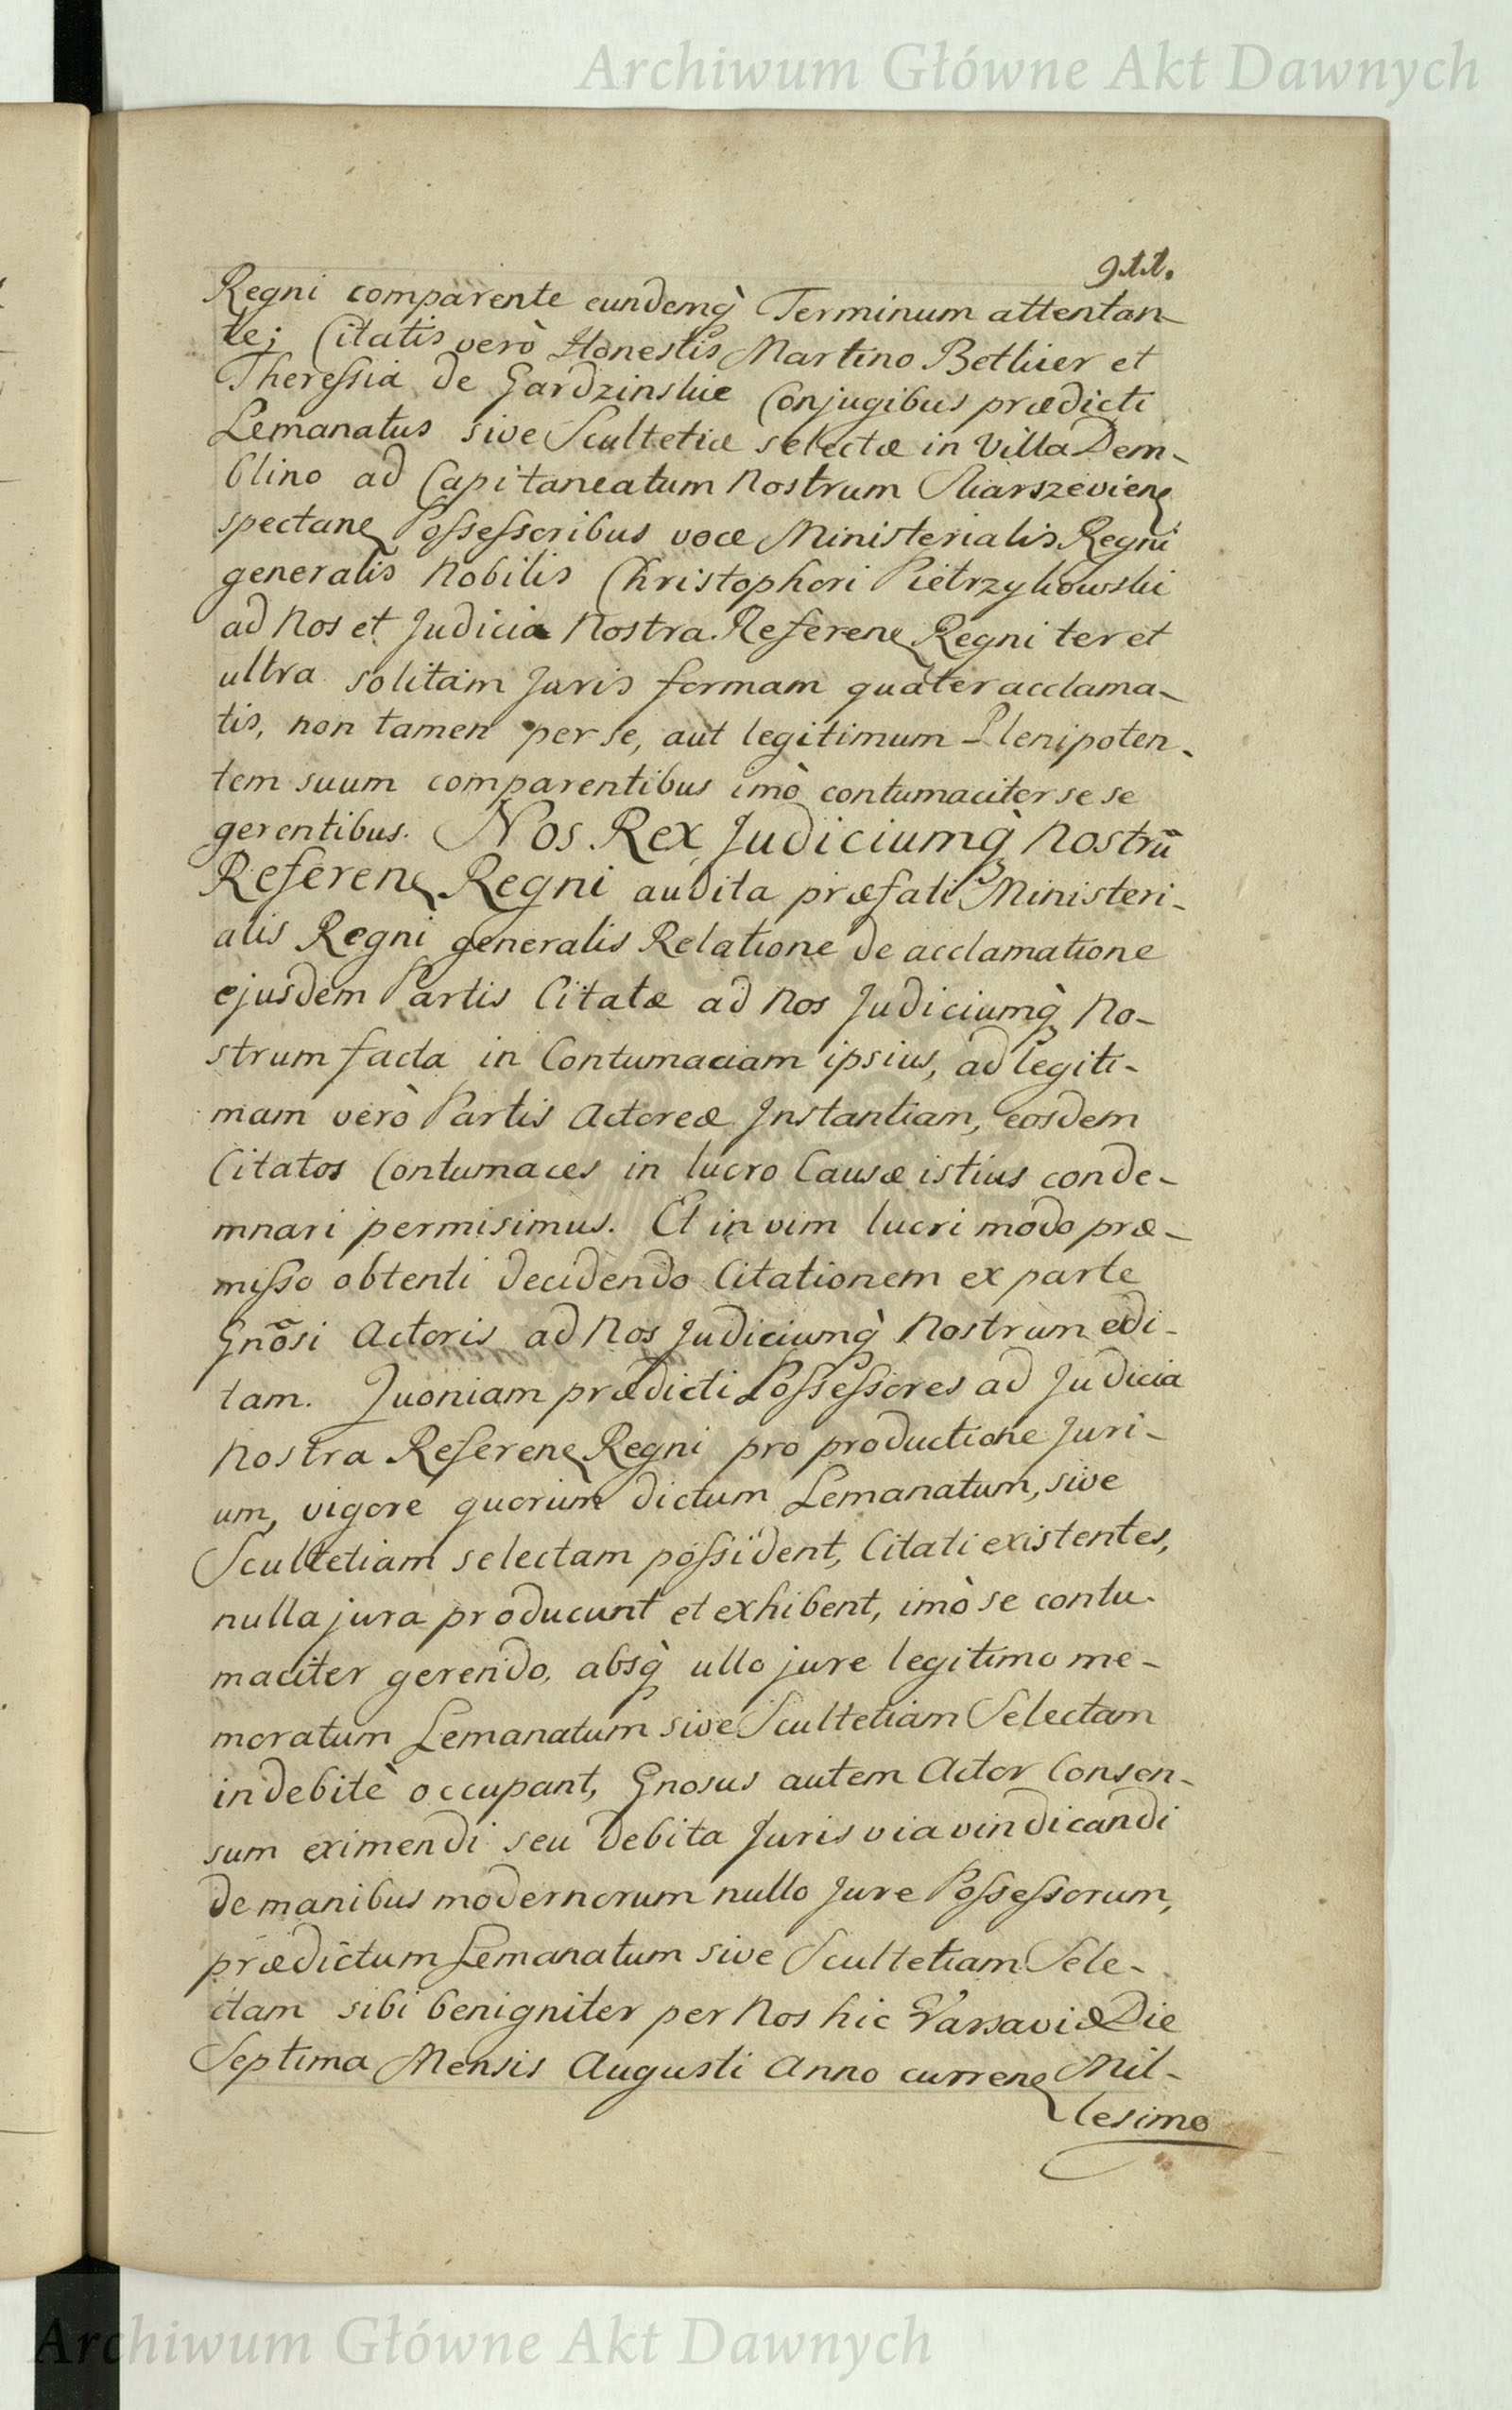 Archiwum Główne Akt Dawnych
911.
Regni comparente eundemq̀ Terminum attentan-
te; Citatis verò Honestis Martino Betkier et
Theressia de Gardzinskie Conjugibus prædicti
Lemanatus sive Scultetiæ selectæ in Villa Dem-
blino ad Capitaneatum Nostrum Skarszevien
spectan Possessoribus voce Ministerialis Regni
generalis Nobilis Christophori Pietrzykowski
ad Nos et Judicia Nostra Referen Regni ter et
ultra solitam Juris formam quater acclama-
tis, non tamen per se, aut legitimum Plenipoten-
tem suum comparentibus imò contumaciter se se
gerentibus. Nos Rex Judiciumq̀ Nostrū
Referen Regni audita præfati Ministeri-
alis Regni generalis Relatione de acclamatione
ejusdem Partis Citatæ ad Nos Judiciumq̀ No-
strum facta in Contumaciam ipsius, ad legiti-
mam verò Partis Actoreæ Instantiam, eosdem
Citatos Contumaces in lucro Causæ istius conde-
mnari permisimus. Et in vim lucri modo præ-
misso obtenti decidendo Citationem ex parte
Gnōsi Actoris ad Nos Judiciumq̀ Nostrum edi-
tam. Quoniam prædicti Possessores ad Judicia
Nostra Referen Regni pro productione Juri-
um, vigore quorum dictum Lemanatum, sive
Scultetiam selectam possident, Citati existentes,
nulla jura producunt et exhibent, imò se contu-
maciter gerendo, absq̀ ullo jure legitimo me-
moratum Lemanatum sive Scultetiam Selectam
indebitè occupant, Gnosus autem Actor Consen-
sum eximendi seu debita Juris via vindicandi
de manibus modernorum nullo Jure Possessorum,
prædictum Lemanatum sive Scultetiam Sele-
ctam sibi benigniter per Nos hic Varsaviæ Die
Septima Mensis Augusti Anno curren Mil-
lesimo
Archiwum Główne Akt Dawnych